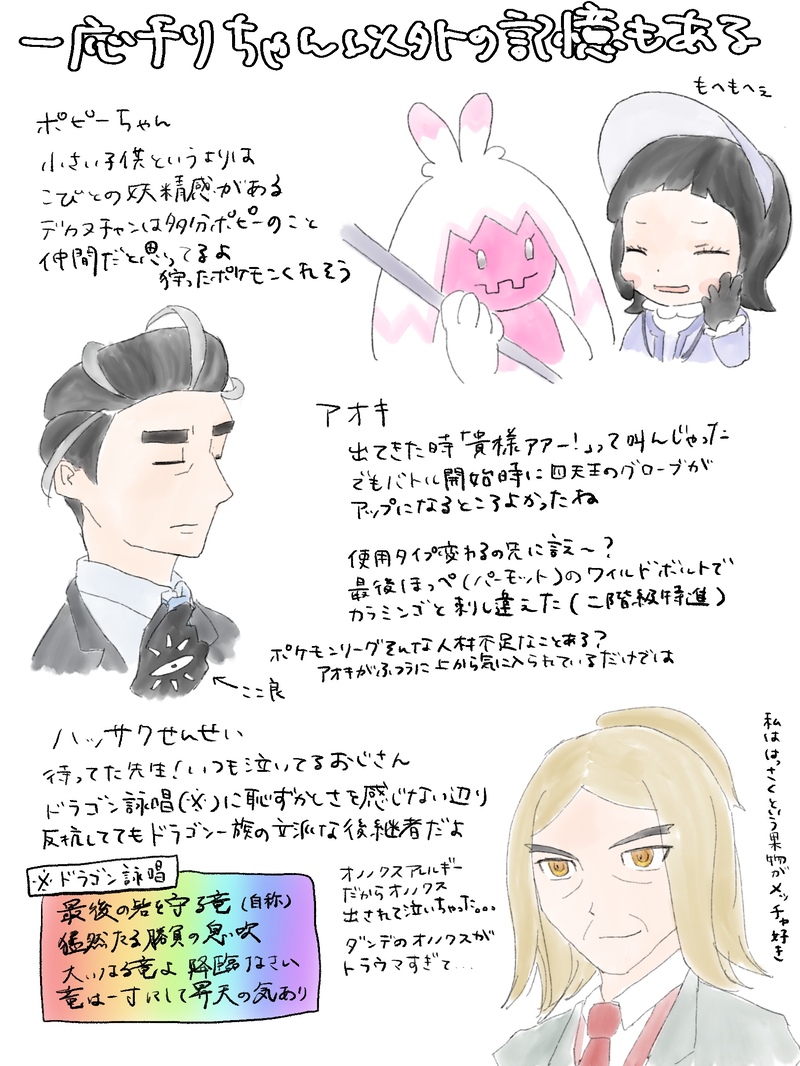 一応チリちゃん以外の記憶もある
もへもへぇ
ポピーちゃん
小さい子供というよりは
こびとの妖精感がある
デカヌチャンは多分ポピーのこと
仲間だと思ってるよ
狩ったポケモンくれそう
アオキ
出てきた時「貴様アアー!」って叫んじゃった
でもバトル開始時に四天王のグローブが
アップになるところよかったね
使用タイプ変わるの先に言え〜?
最後ほっぺ(パーモット)のワイルドボルトで
カラミンゴと刺し違えた(二階級特進)
ポケモンリーグそんな人材不足なことある?
アオキがふつうに上から気に入られているだけでは
ここ良
ハッサクせんせい
待ってた先生!いつも泣いてるおじさん
ドラゴン詠唱(※)に恥ずかしさを感じない辺り
反抗しててもドラゴン一族の立派な後継者だよ
※ドラゴン詠唱
最後の砦を守る竜(自称)
猛然たる勝負の息吹
大いなる竜よ 降臨なさい
竜は一寸にして昇天の気あり
オノノクスアレルギー
だからオノノクス
出されて泣いちゃった。。。
ダンデのオノノクスが
トラウマすぎて...
私ははっさくという果物がメッチャ好き